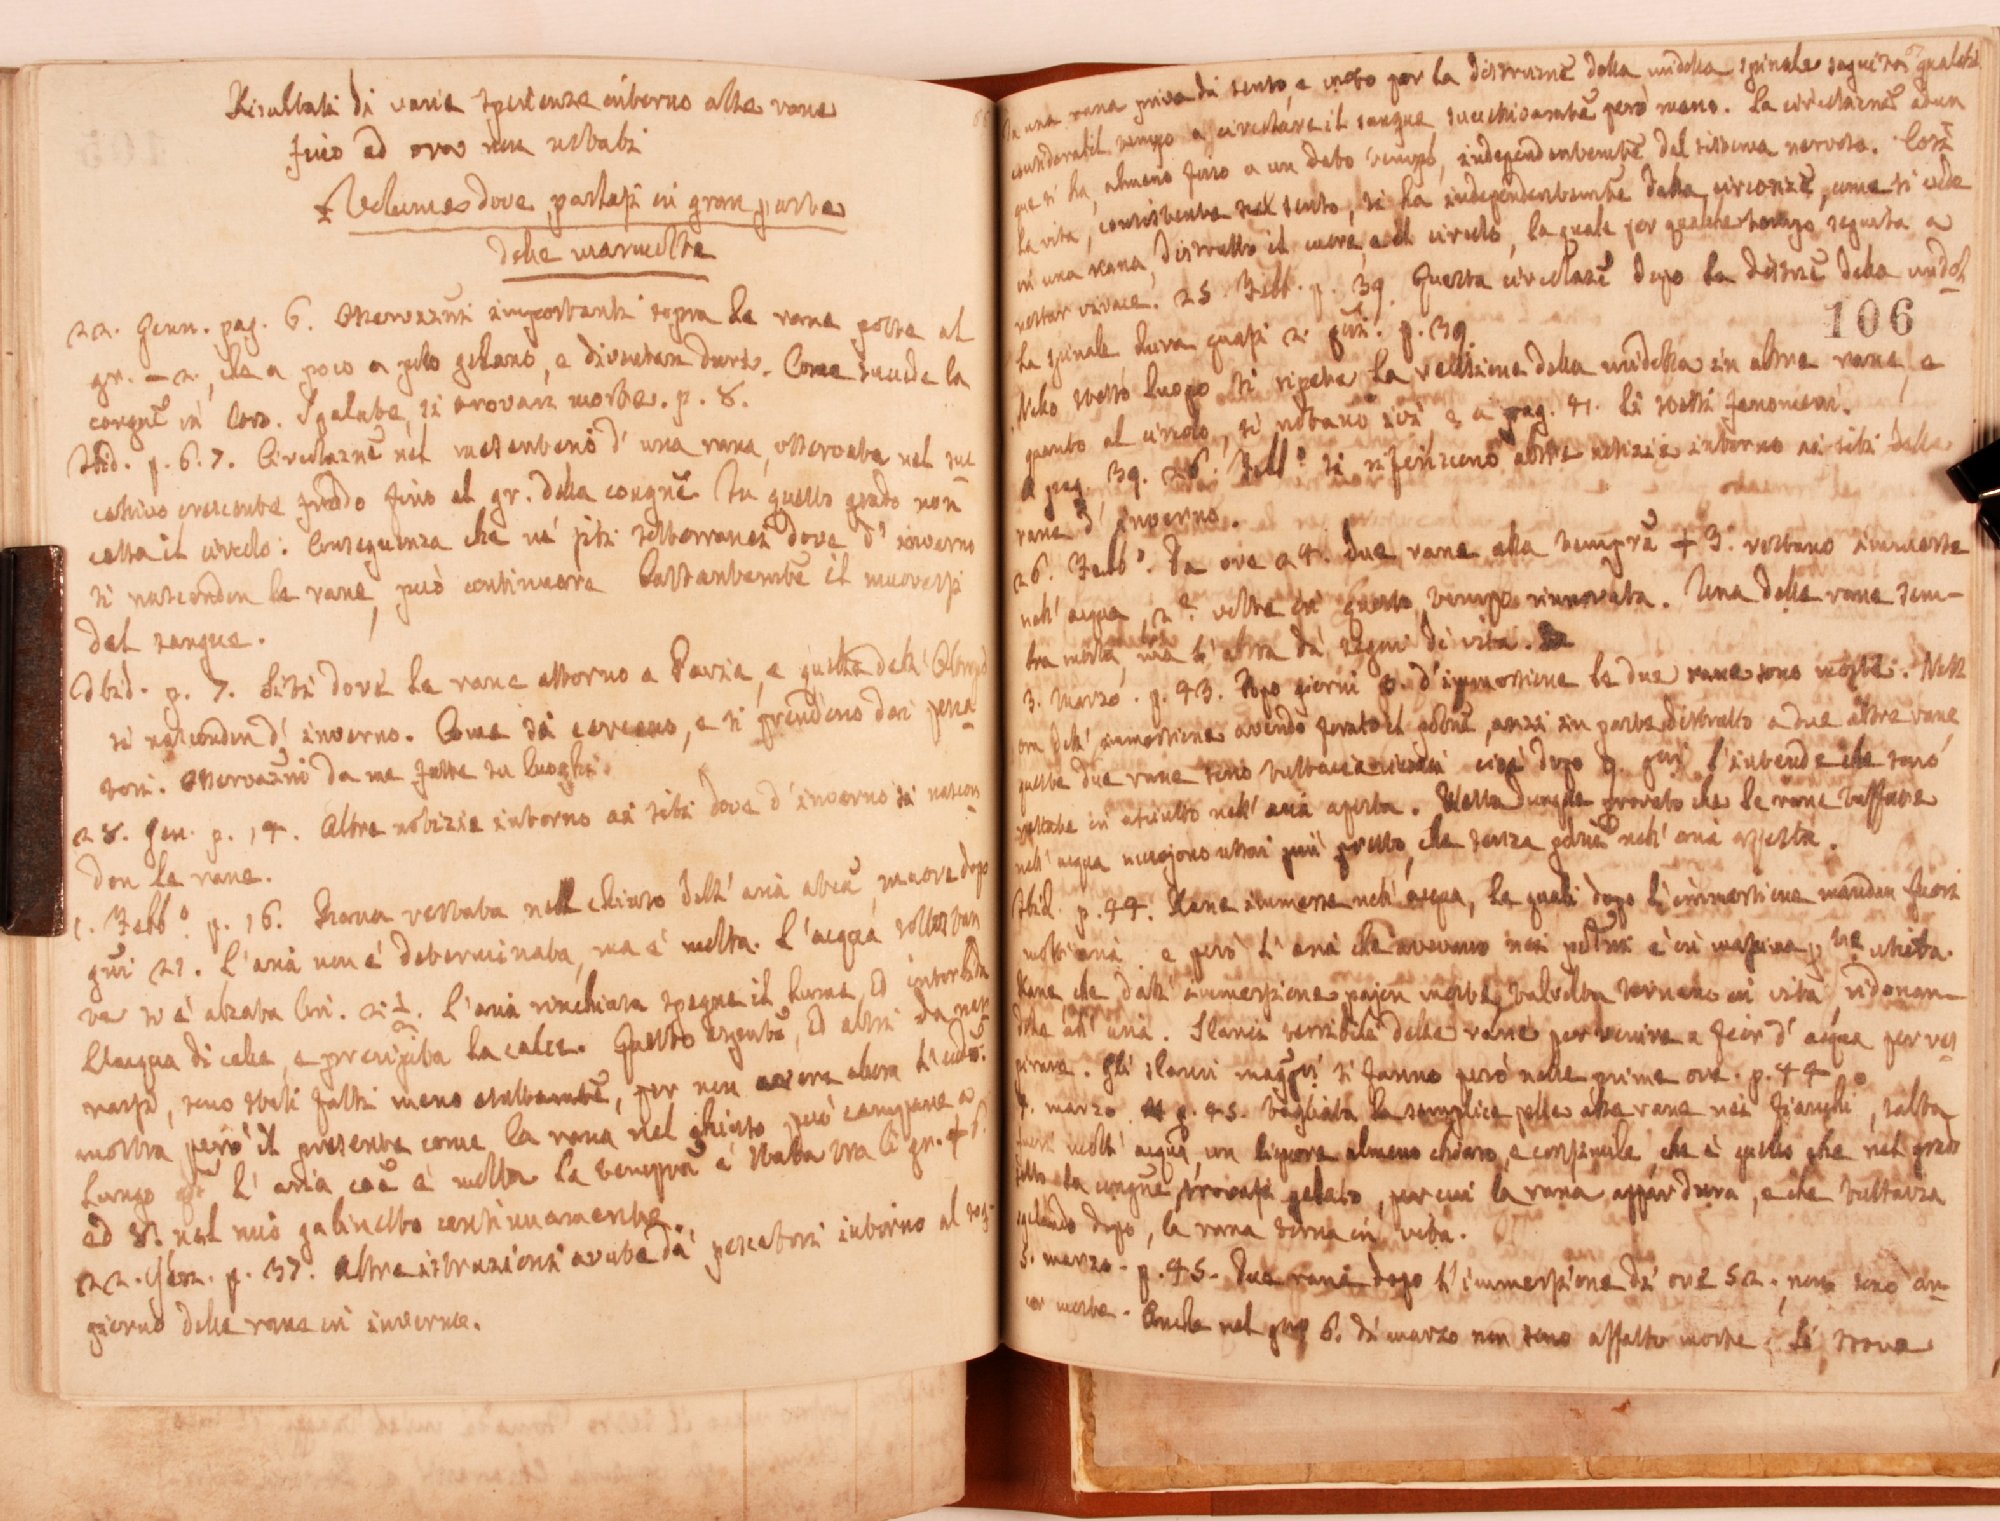 Risultati di varie sperienze intorno alle rane
fino ad ora non notati
Volume dove parlasi in gran parte
delle marmotte
22. Genn. pag. 6. Osservazni importanti sopra le rane poste al
gr. – 2, che a poco a poco gelano, e diventan dure. Come succede la
congne in loro. Sgelate, si trovan morte. p. 8.
Ibid. p. 6. 7. Circolazne nel mesenterio d' una rana, osservata nel suc
cessivo crescente freddo fino al gr. della congne. In questo grado non
cessa il circolo: Conseguenza che ne' siti sotterranei dove d' inverno
si nascondon le rane, può continuare lentamente il muoversi
del sangue.
Ibid. p. 7. Siti dove le rane attorno a Pavia, e quella dell'
si nascondon d' inverno. Come si cercano, e si prendono dai pesca
tori. Osservazni da me fatte su luoghi.
28. Gen. p. 14. Altre notizie intorno ai siti dove d' inverno si nascon
don le rane.
1. Febbo. p. 16. Rana restata nel chiuso dell' aria muore dopo
gni 21. L' aria non è determinata, ma è molta. L' acqua sollevan
va si è alzata lin. 2 1/2. L' aria rinchiusa spegne il lume, ed intorbida
l'acqua di calce, e precipita la calce. Questo ed altri da
rarsi, sono stati fatti meno esattamente, per non avere allora l'
mostra però il presente come la rana nel chiuso può campare a
lungo l' aria è molta. La tempra è stata tra li gr. + 6.
ed 8. nel mio gabinetto continuamente.
22. Gen. p. 37. Altre istruzioni avute da' pescatori intorno al sog-
giorno delle rane in inverno.
In una rana priva di senso, e moto per la distruzne della midolla spinale seguita qualche
considerabil tempo a circolare il sangue, però meno. La circolazne adun
que si ha, almeno fino a un dato tempo, independentemte del sistema nervoso. Così
la vita, consistente nel senso, si ha independentemente dalla circonzne, come si vede
in una rana, distrutto il cuore, e il circolo, la quale per qualche tempo seguita a
restar vivace. 25. Febb. p. 39. Questa circolazne dopo la distrne della midol
la spinale dura quasi 2. gni. p. 39.
106
Nello stesso luogo si ripete la recisione della midolla in altre rane, e
quanto al circolo, si notano ivi, e a pag. 41. li stessi fenomeni.
A pag. 39. 26. Febbo. si riferiscono altre notizie intorno ai siti delle
rane d' inverno.
26. Febbo. Da ore 24. due rane alla tempre + 3. restano immerse
nell' acqua, 2. volte in questo tempo rinnovata. Una delle rane sem-
bra morta, ma l' altra dà segni di vita.
3. Marzo. p. 43. Dopo giorni d' immersione le due rane sono morte. Nell
ora dell' immersione avendo forato il polmne, anzi in parte distrutto a due altre rane,
queste due rane sono tuttavia vivaci cioè dopo gni l' intende che sono
restate in asciutto nell' aria aperta. Resta dunque provato che le rane tuffate
nell' acqua muojono assai più presto, che senza polmni nell' aria aperta.
Ibid. p. 44. Rane immerse nell' acqua, le quali dopo l' immersione mandan fuori
molt' aria: e però l' aria che avevano nei polmni è in massima pte uscita.
Rane che dall' immersione pajon morte, talvolta tornano in vita, ridonan-
dole all' aria. Slanci terribili delle rane per venire a fior d' acqua per res
pirare. Gli slanci maggri si fanno però nelle prime ore. p. 44.
4. marzo p. 45. Tagliata la semplice pelle alle rane nei fianchi, salta
fuori molt' acqua, un liquore almeno chiaro, e consimile, che è quello che nel grado
sotto la congne trovasi gelato, per cui la rana appar dura, e che tuttavia
sgelando dopo, la rana torna in vita.
5. marzo. p. 45. Due rane dopo l' immersione di ore 52. non sono an-
cor morte. Anche nel gno 6. di marzo non sono affatto morte. Si trova